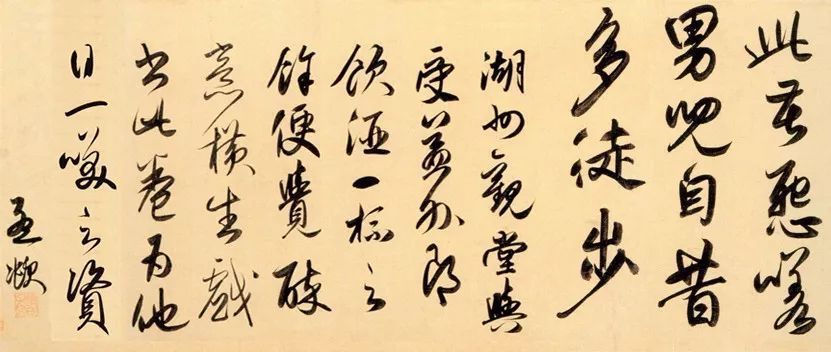 此嗟
男兒自昔
多徒步
湖州觀堂與
受益外郎
飲酒一杯之
餘便覺醉
意橫生戲
書此卷為他
日一笑之資
孟頫